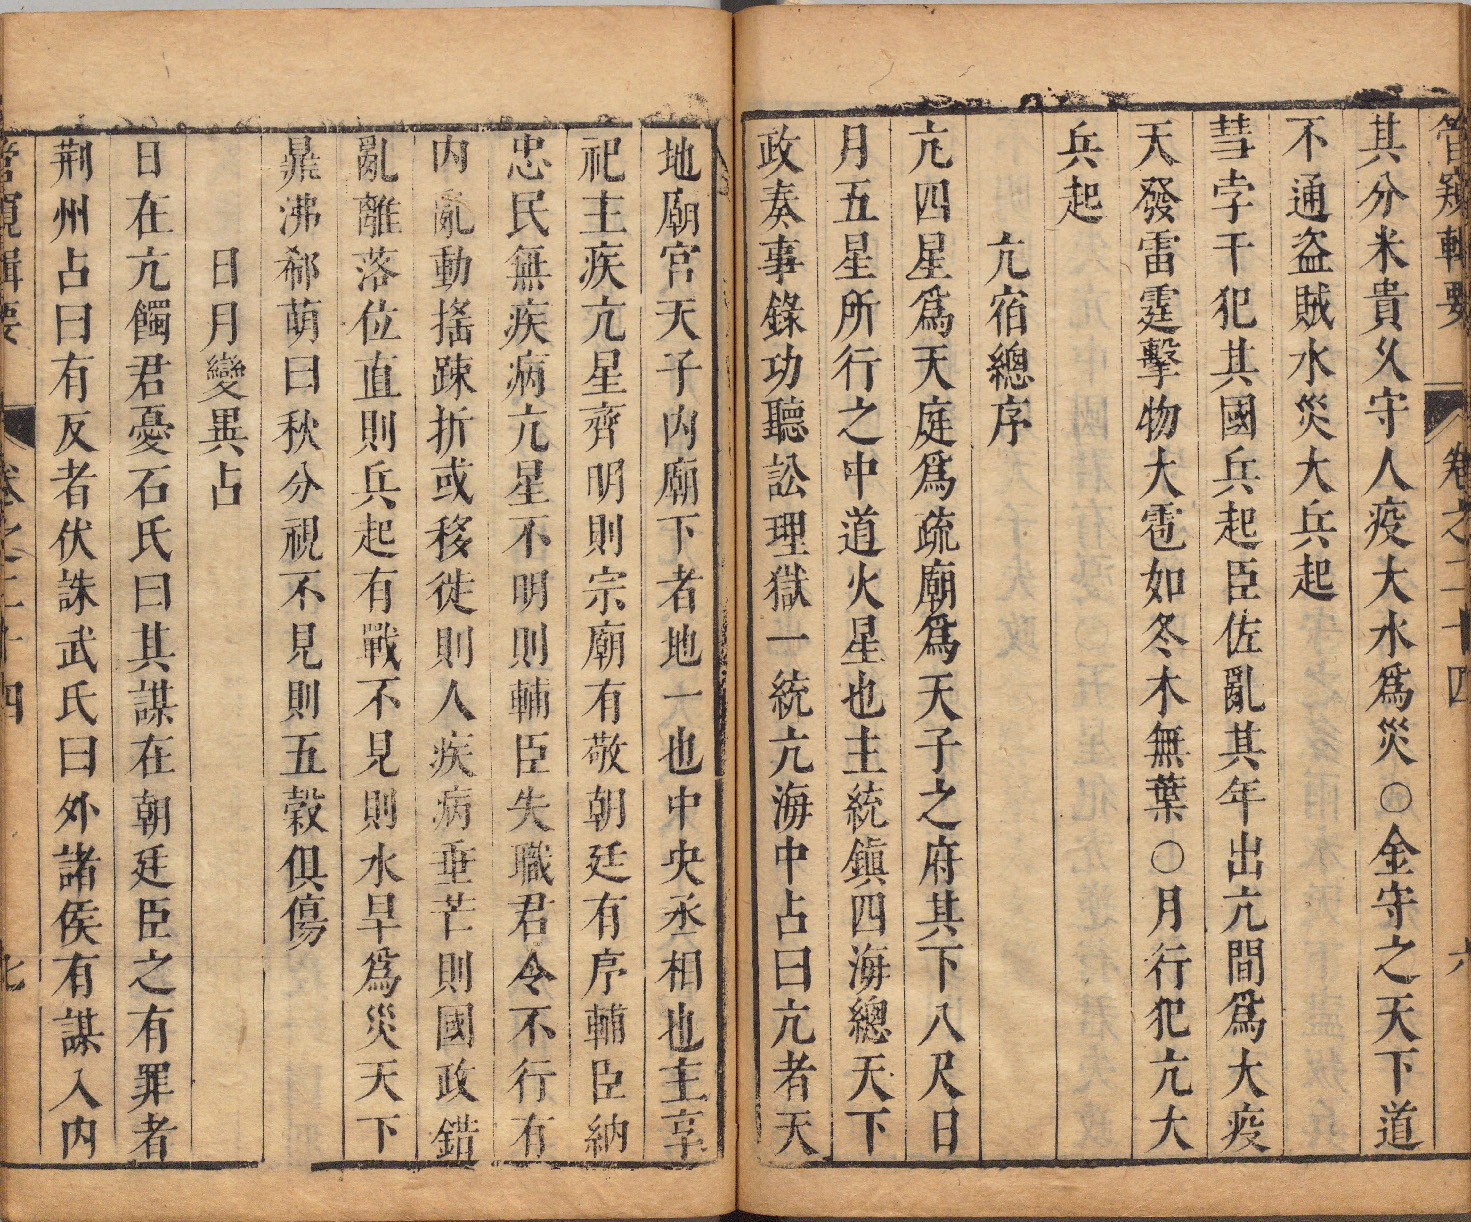 管窺輯要 卷之二十四 六
其分米貴久守人疫大水爲災○金守之天下道
不通盗賊水災大兵起
彗孛干犯其國兵起臣佐亂其年出亢間爲大疫
天發雷霆擊物大雹如冬木無葉○月行犯亢大
兵起
亢宿總序
亢四星爲天庭爲疏廟爲天子之府其下八尺日
月五星所行之中道火星也主統鎮四海總天下
政奏事錄功聽訟理獄一統亢海中占曰亢者天
地廟宫天子内廟下者地一也中央丞相也主享
祀主疾亢星齊明則宗廟有敬朝廷有序輔臣納
忠民無疾病亢星不明則輔臣失職君令不行有
内亂動搖踈折或移徙則人疾病垂芒則國政錯
亂離落位直則兵起有戰不見則水旱爲災天下
鼎沸郗萌曰秋分視不見則五穀俱傷
日月變異占
日在亢饊君憂石氏曰其謀在朝廷臣之有罪者
荆州占曰有反者伏誅武氏曰外諸侯有謀入内
管窺輯要 卷之二十四 七